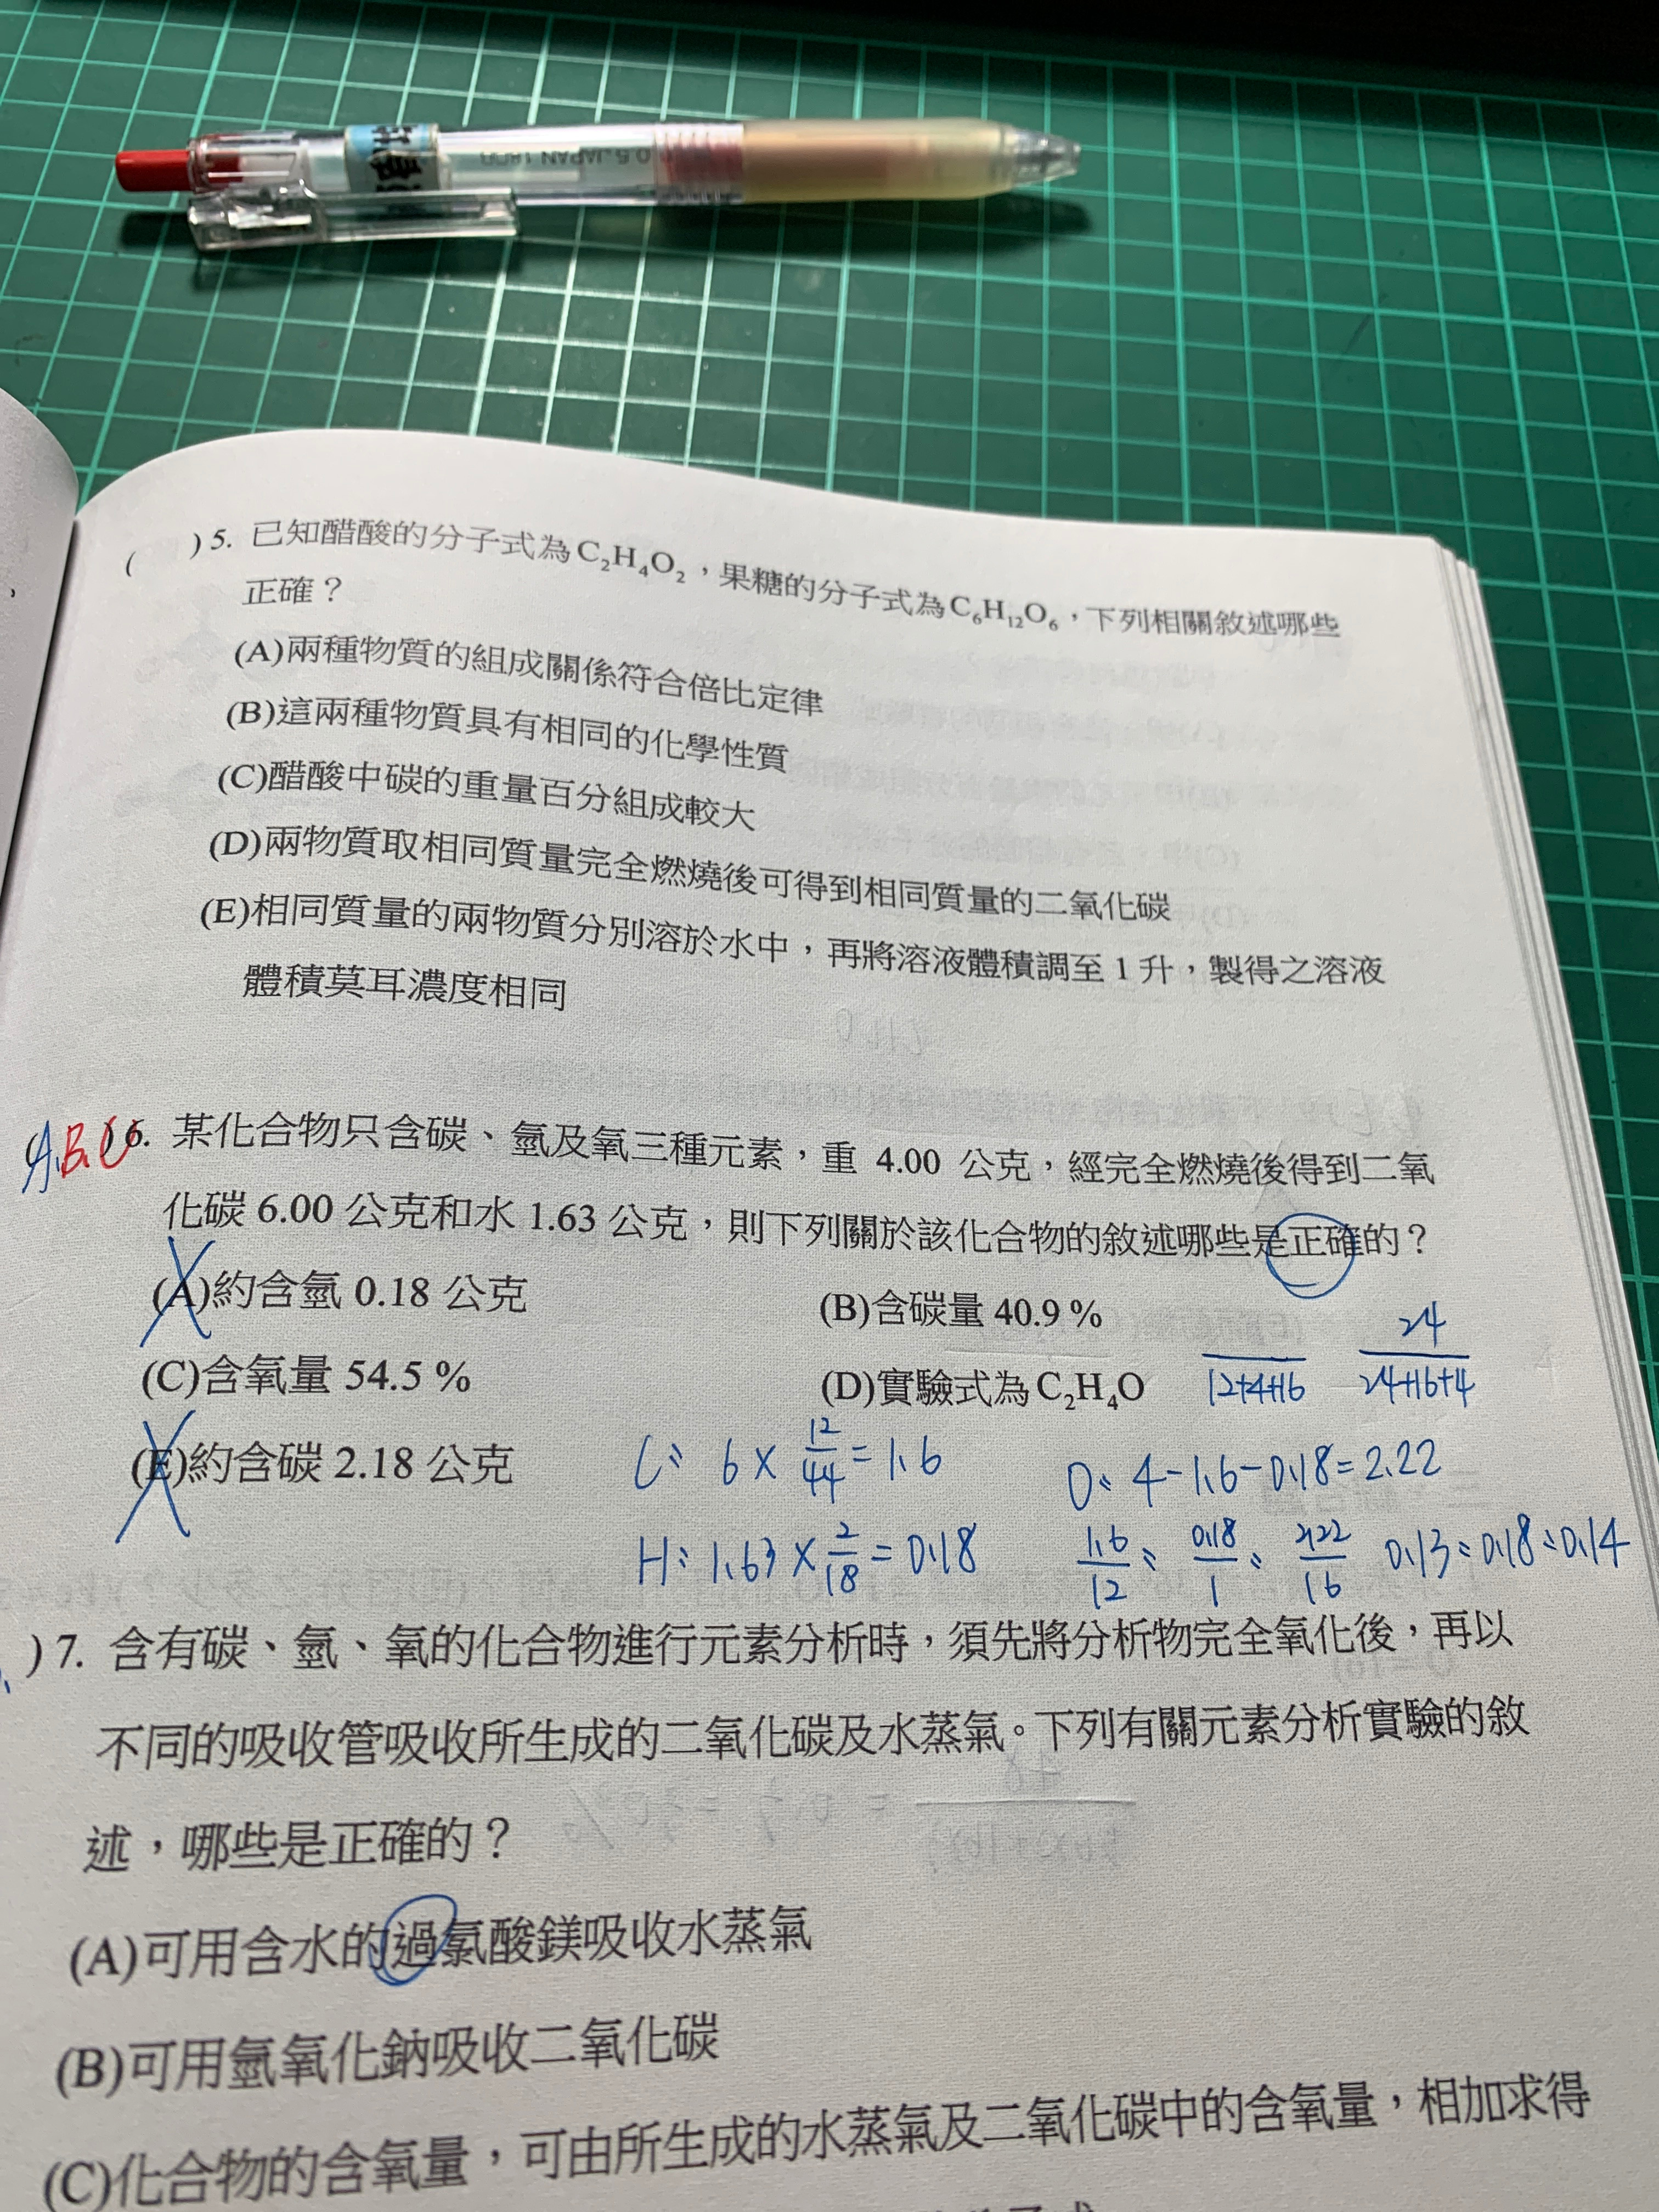 0.5 JAPAN
( ) 5. 已知醋酸的分子式為C₂H₄O₂，果糖的分子式為C₆H₁₂O₆，下列相關敘述哪些
正確？
(A)兩種物質的組成關係符合倍比定律
(B)這兩種物質具有相同的化學性質
(C)醋酸中碳的重量百分組成較大
(D)兩物質取相同質量完全燃燒後可得到相同質量的二氧化碳
(E)相同質量的兩物質分別溶於水中，再將溶液體積調至 1 升，製得之溶液
體積莫耳濃度相同
(A.B.C) 6. 某化合物只含碳、氫及氧三種元素，重 4.00 公克，經完全燃燒後得到二氧
化碳 6.00 公克和水 1.63 公克，則下列關於該化合物的敘述哪些是正確的？
(A)約含氫 0.18 公克 (B)含碳量 40.9 %
(C)含氧量 54.5 % (D)實驗式為C₂H₄O 12+4+16 24/24+16+4
(E)約含碳 2.18 公克 C: 6 × 12/44 = 1.6 O: 4-1.6-0.18=2.22
H: 1.63 × 2/18 = 0.18 1.6/12 : 0.18/1 : 2.22/16 0.13:0.18:0.14
) 7. 含有碳、氫、氧的化合物進行元素分析時，須先將分析物完全氧化後，再以
不同的吸收管吸收所生成的二氧化碳及水蒸氣。下列有關元素分析實驗的敘
述，哪些是正確的？
(A)可用含水的過氯酸鎂吸收水蒸氣
(B)可用氫氧化鈉吸收二氧化碳
(C)化合物的含氧量，可由所生成的水蒸氣及二氧化碳中的含氧量，相加求得